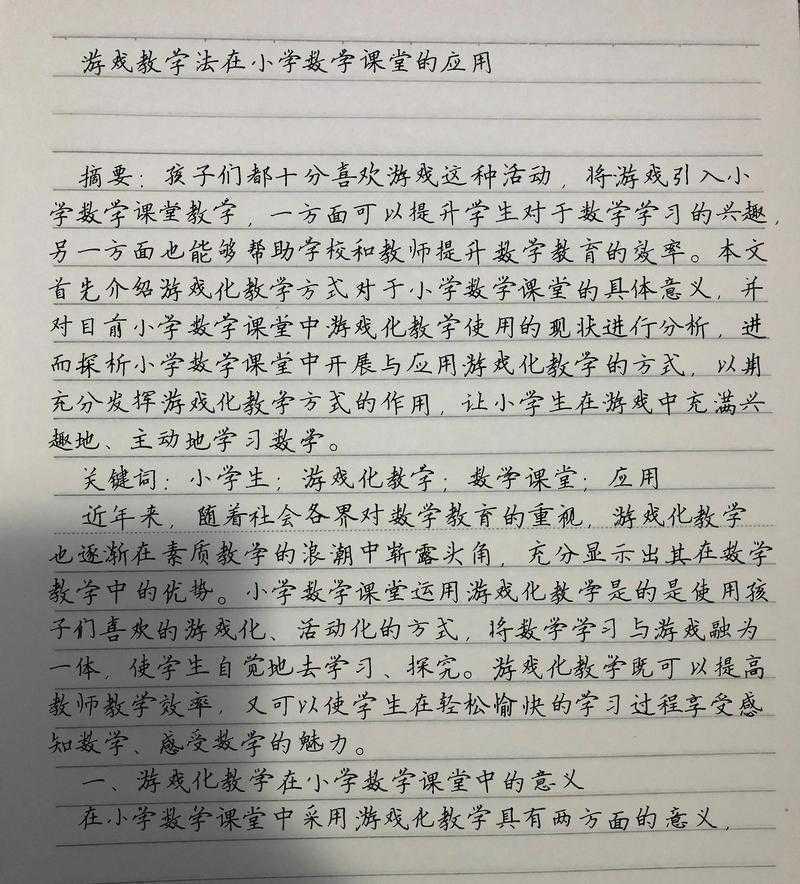 游戏教学法在小学数学课堂的应用
摘要：孩子们都十分喜欢游戏这种活动，将游戏引入小
学数学课堂教学，一方面可以提升学生对于数学学习的兴趣，
另一方面也能够帮助学校和教师提升数学教育的效率。本文
首先介绍游戏化教学方式对于小学数学课堂的具体意义，并
对目前小学数学课堂中游戏化教学使用的现状进行分析，进
而探析小学数学课堂中开展与应用游戏化教学的方式，以期
充分发挥游戏化教学方式的作用，让小学生在游戏中充满兴
趣地、主动地学习数学。
关键词：小学生；游戏化教学；数学课堂；应用
近年来，随着社会各界对数学教育的重视，游戏化教学
也逐渐在素质教学的浪潮中崭露头角，充分显示出其在数学
教学中的优势。小学数学课堂运用游戏化教学是的是使用孩
子们喜欢的游戏化、活动化的方式，将数学学习与游戏融为
一体，使学生自觉地去学习、探究。游戏化教学既可以提高
教师教学效率，又可以使学生在轻松愉快的学习过程享受感
知数学、感受数学的魅力。
一、游戏化教学在小学数学课堂中的意义
在小学数学课堂中采用游戏化教学具有两方面的意义，